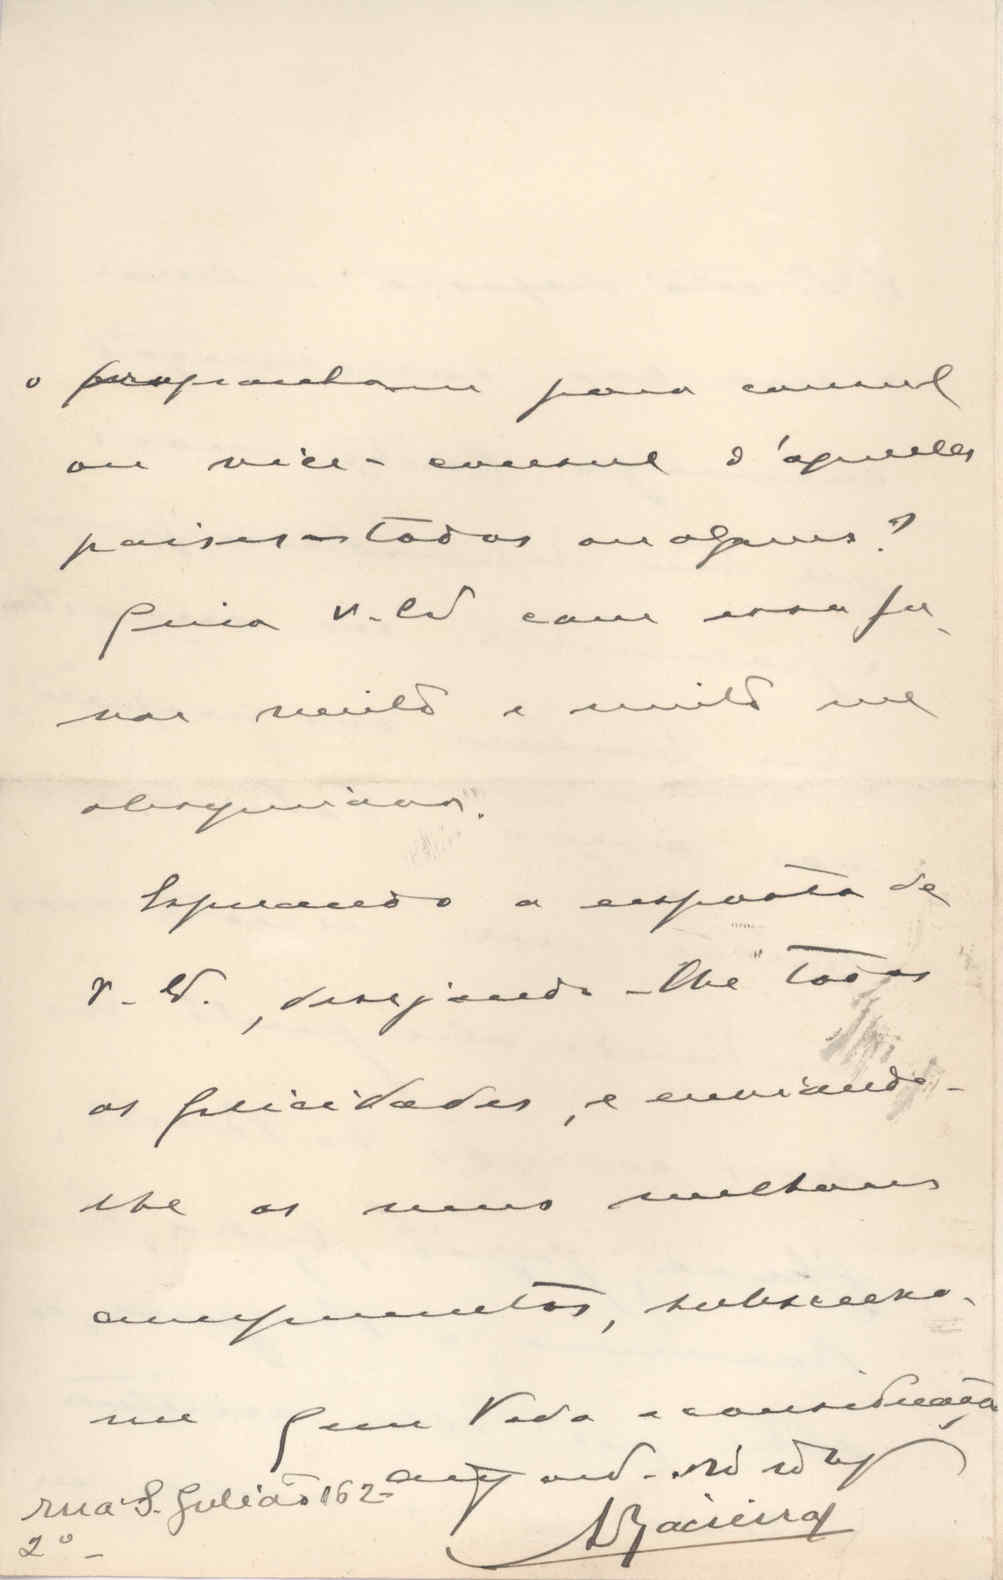 o proponham para consul
ou vice-consul d'aquelles
paises - todos ou alguns?
Queira V. Ex.ª com essa fi-
neza muito e muito me
obsequiará.
Esperando a resposta de
V. Ex.ª, desejando-lhe todas
as felicidades, e enviando-
lhe os meus melhores
cumprimentos, subscrevo-
me com toda a consideração
rua S. Julião 162-
2º-